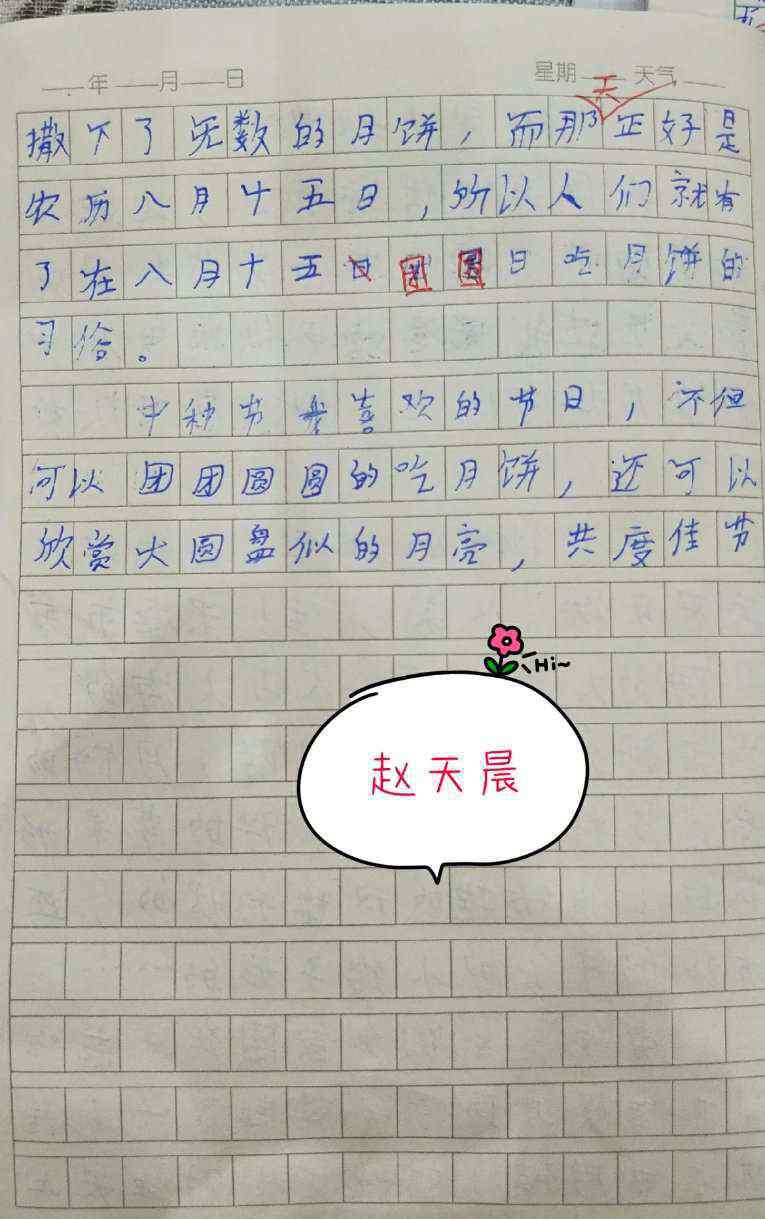 年 月 日 星期 天气
天
撒下了无数的月饼，而那正好是
农历八月十五日，所以人们就有
了在八月十五日团圆日吃月饼的
习俗。
中秋节 喜欢的节日，不但
可以团团圆圆的吃月饼，还可以
欣赏火圆盘似的月亮，共度佳节
Hi~
赵天晨